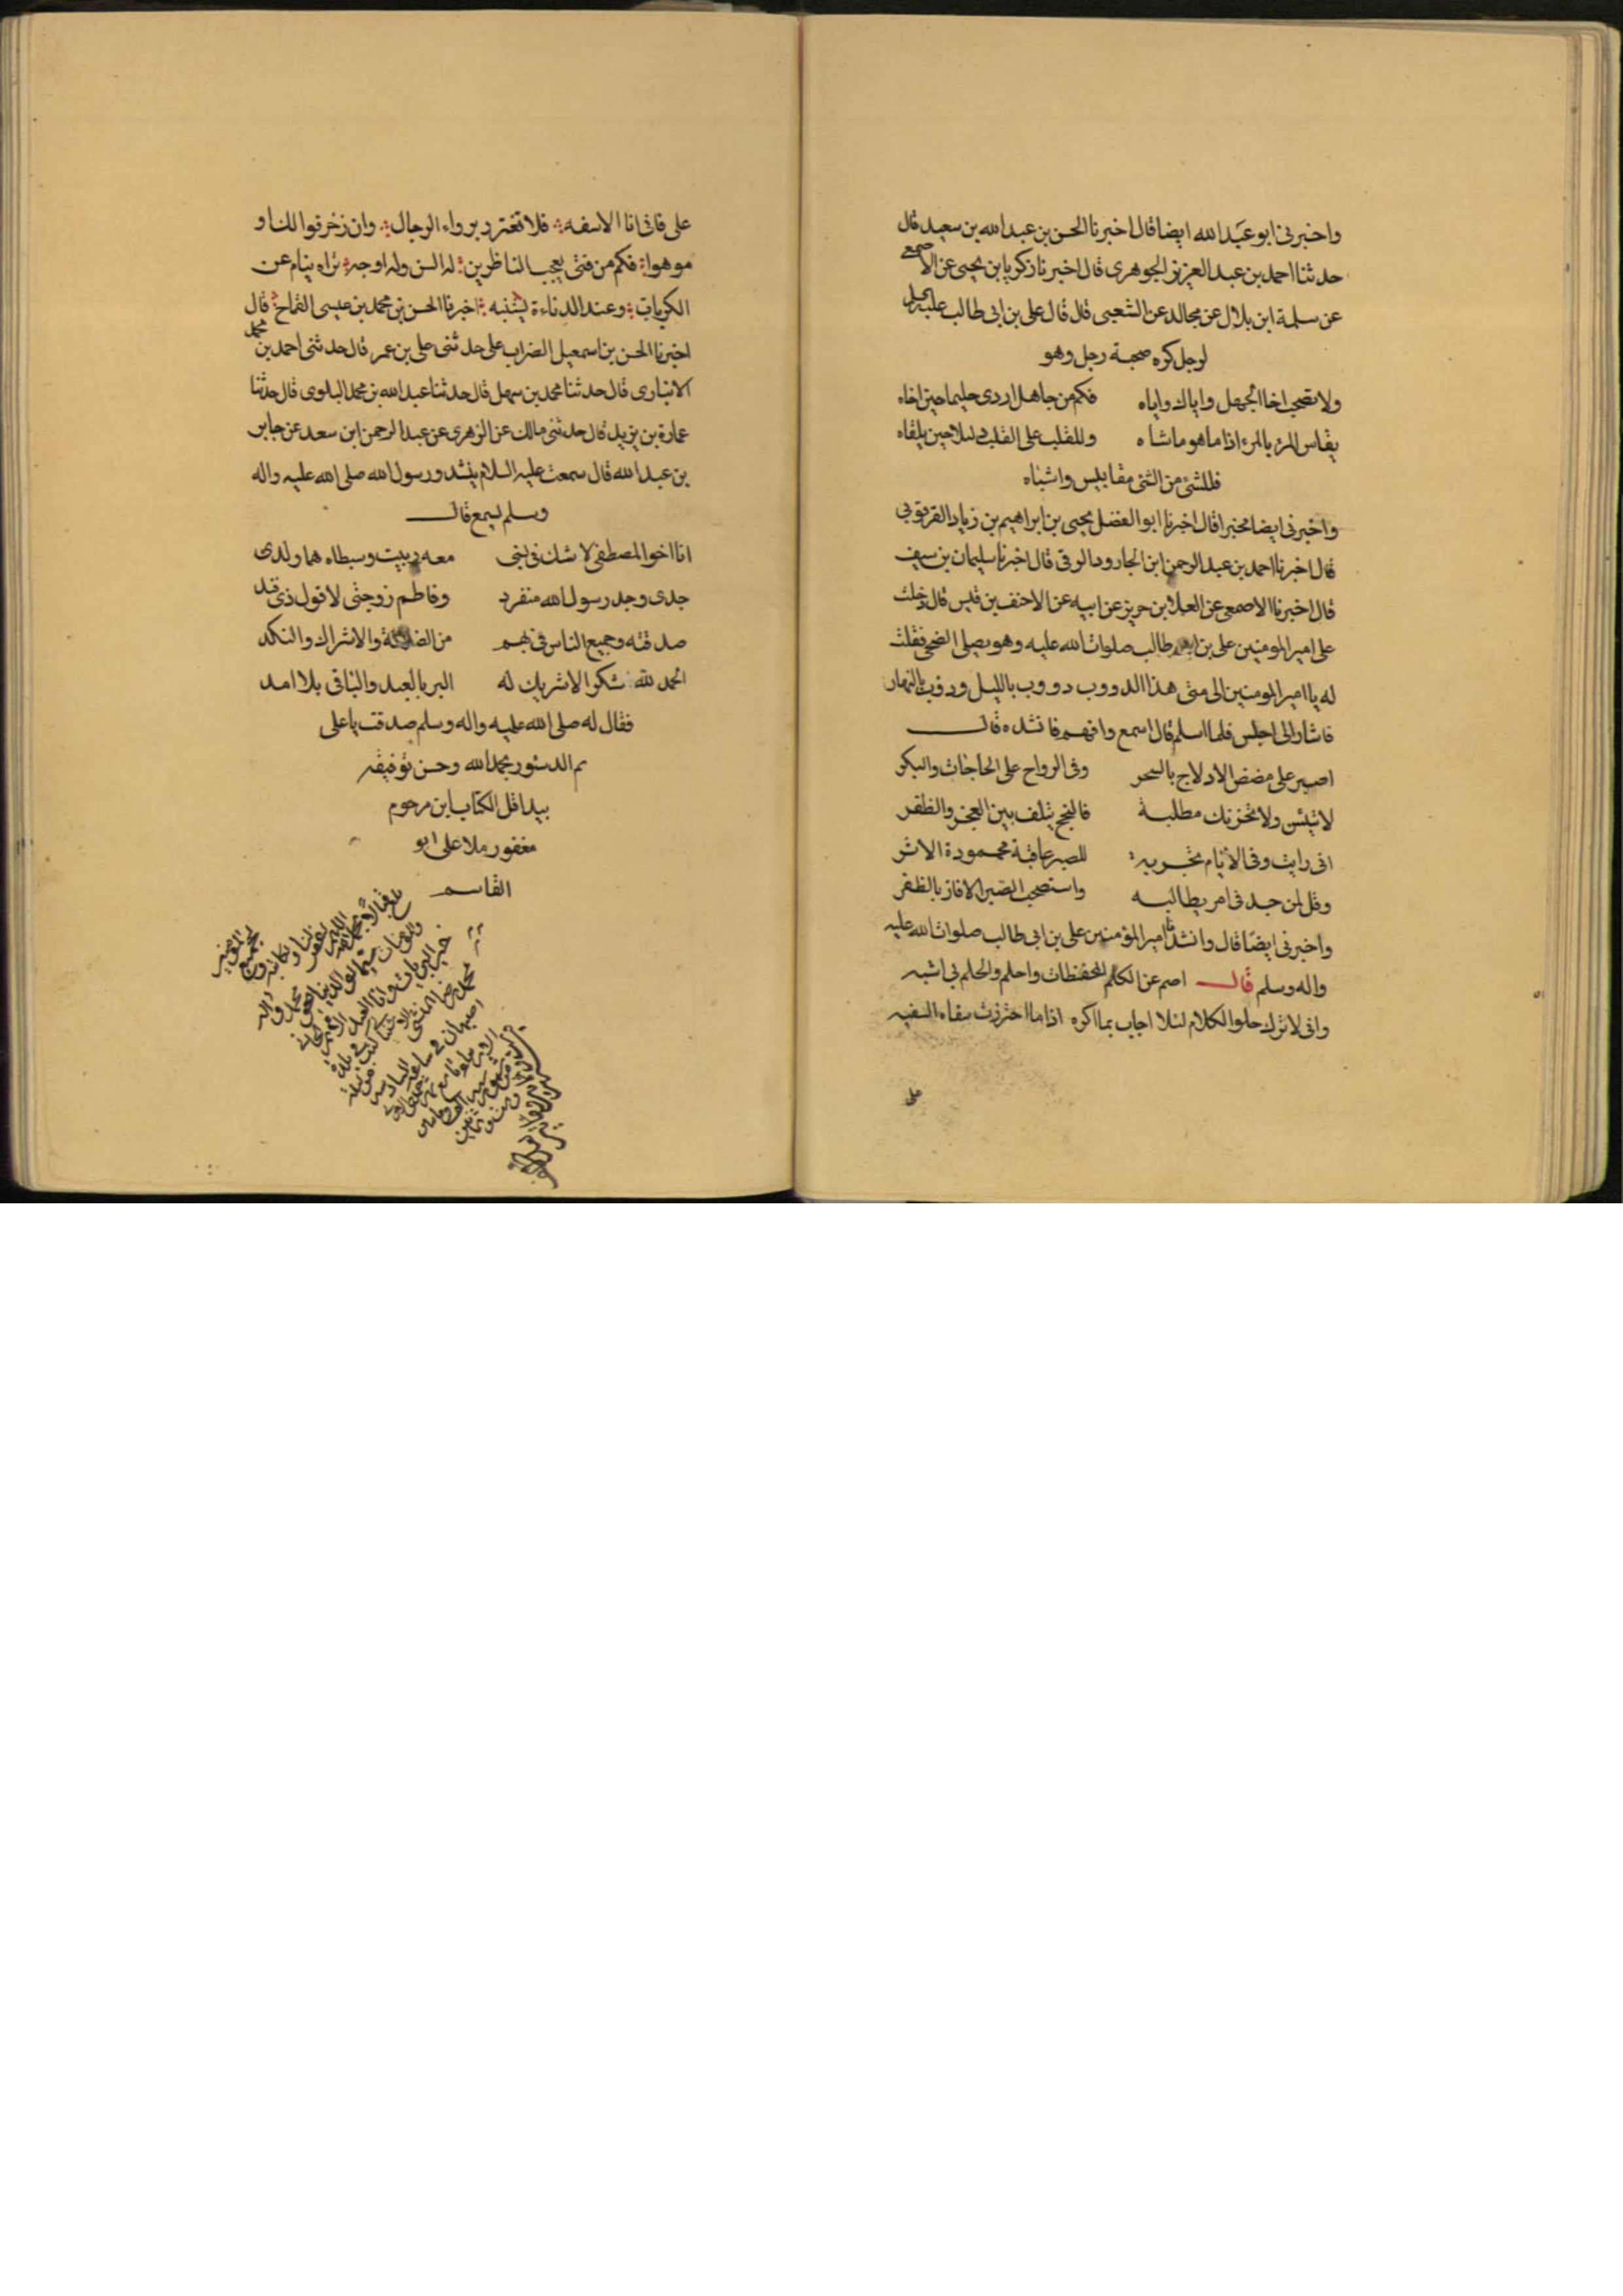 واخبرنى ابو عبد الله ايضا قال اخبرنا الحسن بن عبد الله بن سعيد قال
حدثنا احمد بن عبد العزيز الجوهرى قال اخبرنا زكريا بن يحيى عن الاصمعى
عن سلمة ابن بلال عن مجالد عن الشعبى قال قال على بن ابى طالب عليه
لرجل كره صحبة رجل وهو
ولا تصحب اخا الجهل واياك واياه فكم من جاهل اردى حليما حين اخاه
يقاس المرء بالمرء اذا ما هو ما شاه وللقلب على القلب دليلا حين يلقاه
فللشئ من الشئ مقاييس واشباه
واخبرنى ايضا مخبرا قال اخبرنا ابو الفضل يحيى بن ابراهيم بن زياد
قال اخبرنا احمد بن عبد الرحمن ابن الجارود الرقى قال اخبرنا سليمان بن سيف
قال اخبرنا الاصمعى عن العلا ابن حريز عن ابيه عن الاحنف بن قيس قال دخلت
على امير المومنين على بن ابى طالب صلوات الله عليه وهو يصلى الضحى فقلت
له يا امير المومنين الى متى هذا الدووب دووب بالليل ودؤب بالنهار
فاشار الى اجلس فلما اسلم قال اسمع وافهم فانشده قال
اصبر على مضض الادلاج بالسحر وفى الرواح على الحاجات والبكر
لا تيئسن ولا تحزنك مطلبة فالنجح يتلف بين العجز والظفر
انى رايت وفى الايام تجربه للصبر عاقبة محمودة الاثر
وقل لمن جد فى امر يطالبه واستصحب الصبر الا فاز بالظفر
واخبرنى ايضا قال وانشدنا امير المؤمنين على بن ابى طالب صلوات الله عليه
واله وسلم قال اصم عن الكلم المحفظات واحلم والحلم بى اشبه
وانى لاترك حلو الكلام لئلا اجاب بما اكره اذا ما اجتررت سفاه السفيه
على
على فانى انا الاسفه فلا تغترر برواء الرجال وان زخرفوا لك او
موهوا فكم من فتى يعجب الناظرين له السن وله اوجه تراه ينام عن
الكربات وعند الدناءة يشنبه اخبرنا الحسن بن محمد بن عيسى القماح قال
اخبرنا الحسن بن اسمعيل الضراب على حدثنى على بن عمر قال حدثنى احمد بن محمد
الانبارى قال حدثنا محمد بن سهل قال حدثنا عبد الله بن محمد البلوى قال حدثنا
عمارة بن يزيد قال حدثنى مالك عن الزهرى عن عبد الرحمن ابن سعد عن جابر
بن عبد الله قال سمعت عليه السلام ينشد ورسول الله صلى الله عليه واله
وسلم يسمع قال
انا اخو المصطفى لا شك فى نسبى معه ربيت وسبطاه هما ولدى
جدى وجد رسول الله منفرد وفاطم زوجتى لا قول ذى فند
صدقته وجميع الناس فى بهم من الضلالة والاشراك والنكد
الحمد لله شكرا لا شريك له البر بالعبد والباقى بلا امد
فقال له صلى الله عليه واله وسلم صدقت يا على
تم الدستور بحمد الله وحسن توفيقه
بيد اقل الكتاب ابن مرحوم
مغفور ملا على ابو
القاسم